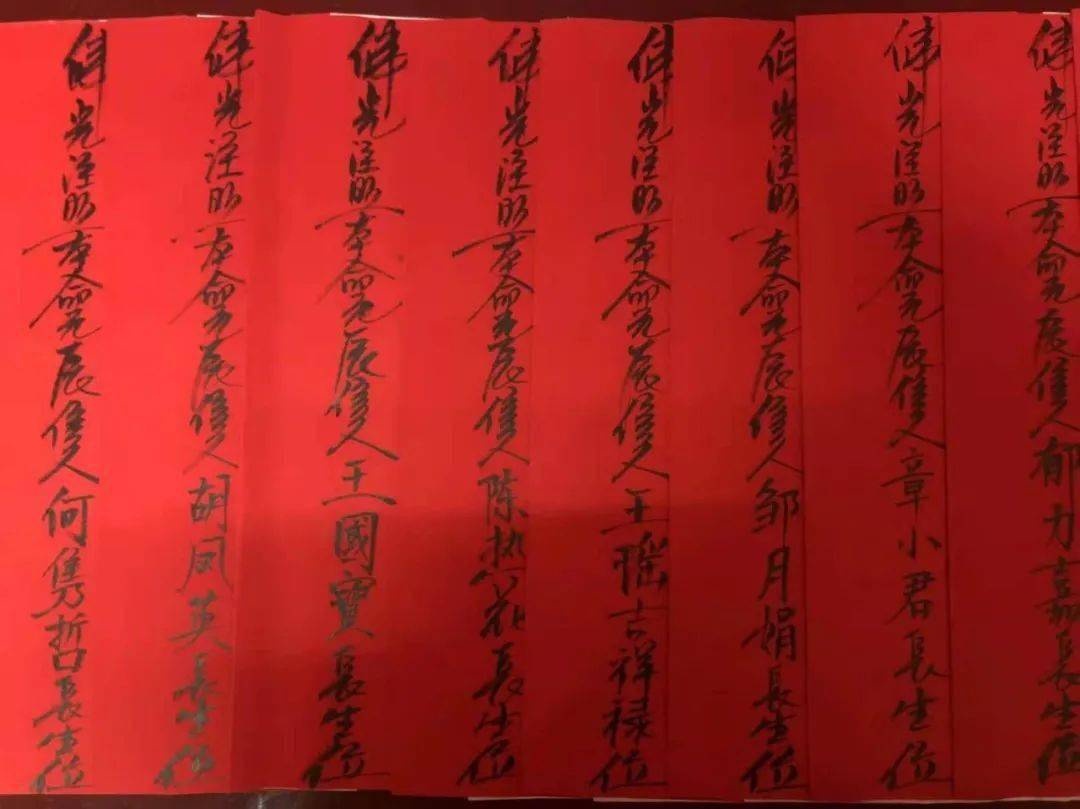 佛光注照本命元辰信人郁力嘉長生位
佛光注照本命元辰信人章小君長生位
佛光注照本命元辰信人邹月娟長生位
佛光注照本命元辰信人王瑶吉祥禄位
佛光注照本命元辰信人陈热花長生位
佛光注照本命元辰信人王國寶長生位
佛光注照本命元辰信人胡凤英長生位
佛光注照本命元辰信人何隽哲長生位